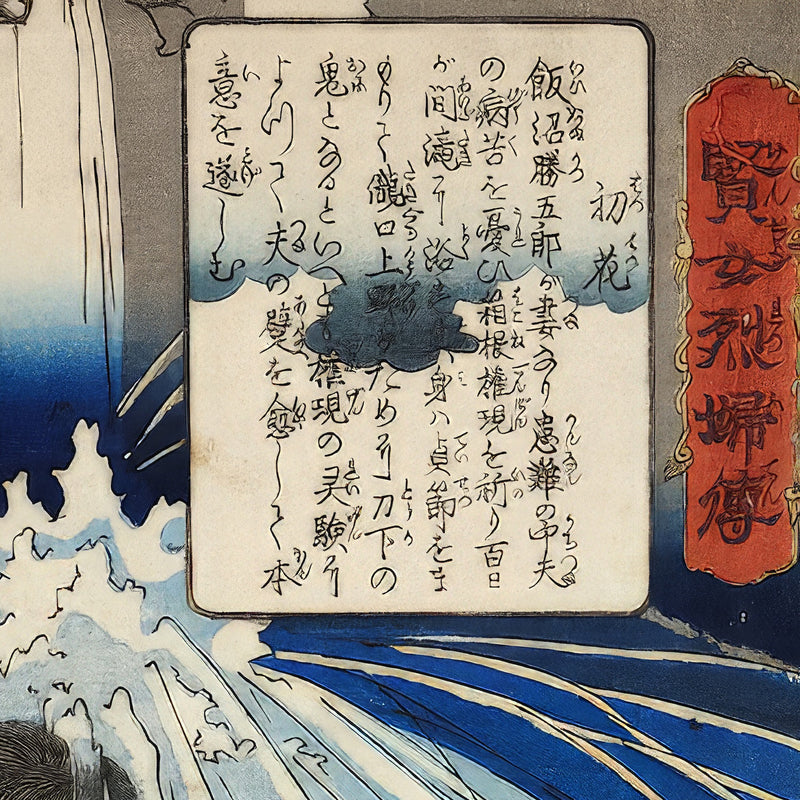 賢女烈婦傳
初花
飯沼勝五郎が妻なり患難の中夫
の病苦を憂ひ箱根権現を祈り百日
が間滝に浴す身ハ貞節をま
もりて瀧口上野のために刀下の
鬼となるといへども権現の灵験に
よつて夫の躄を愈して本
意を遂しむ